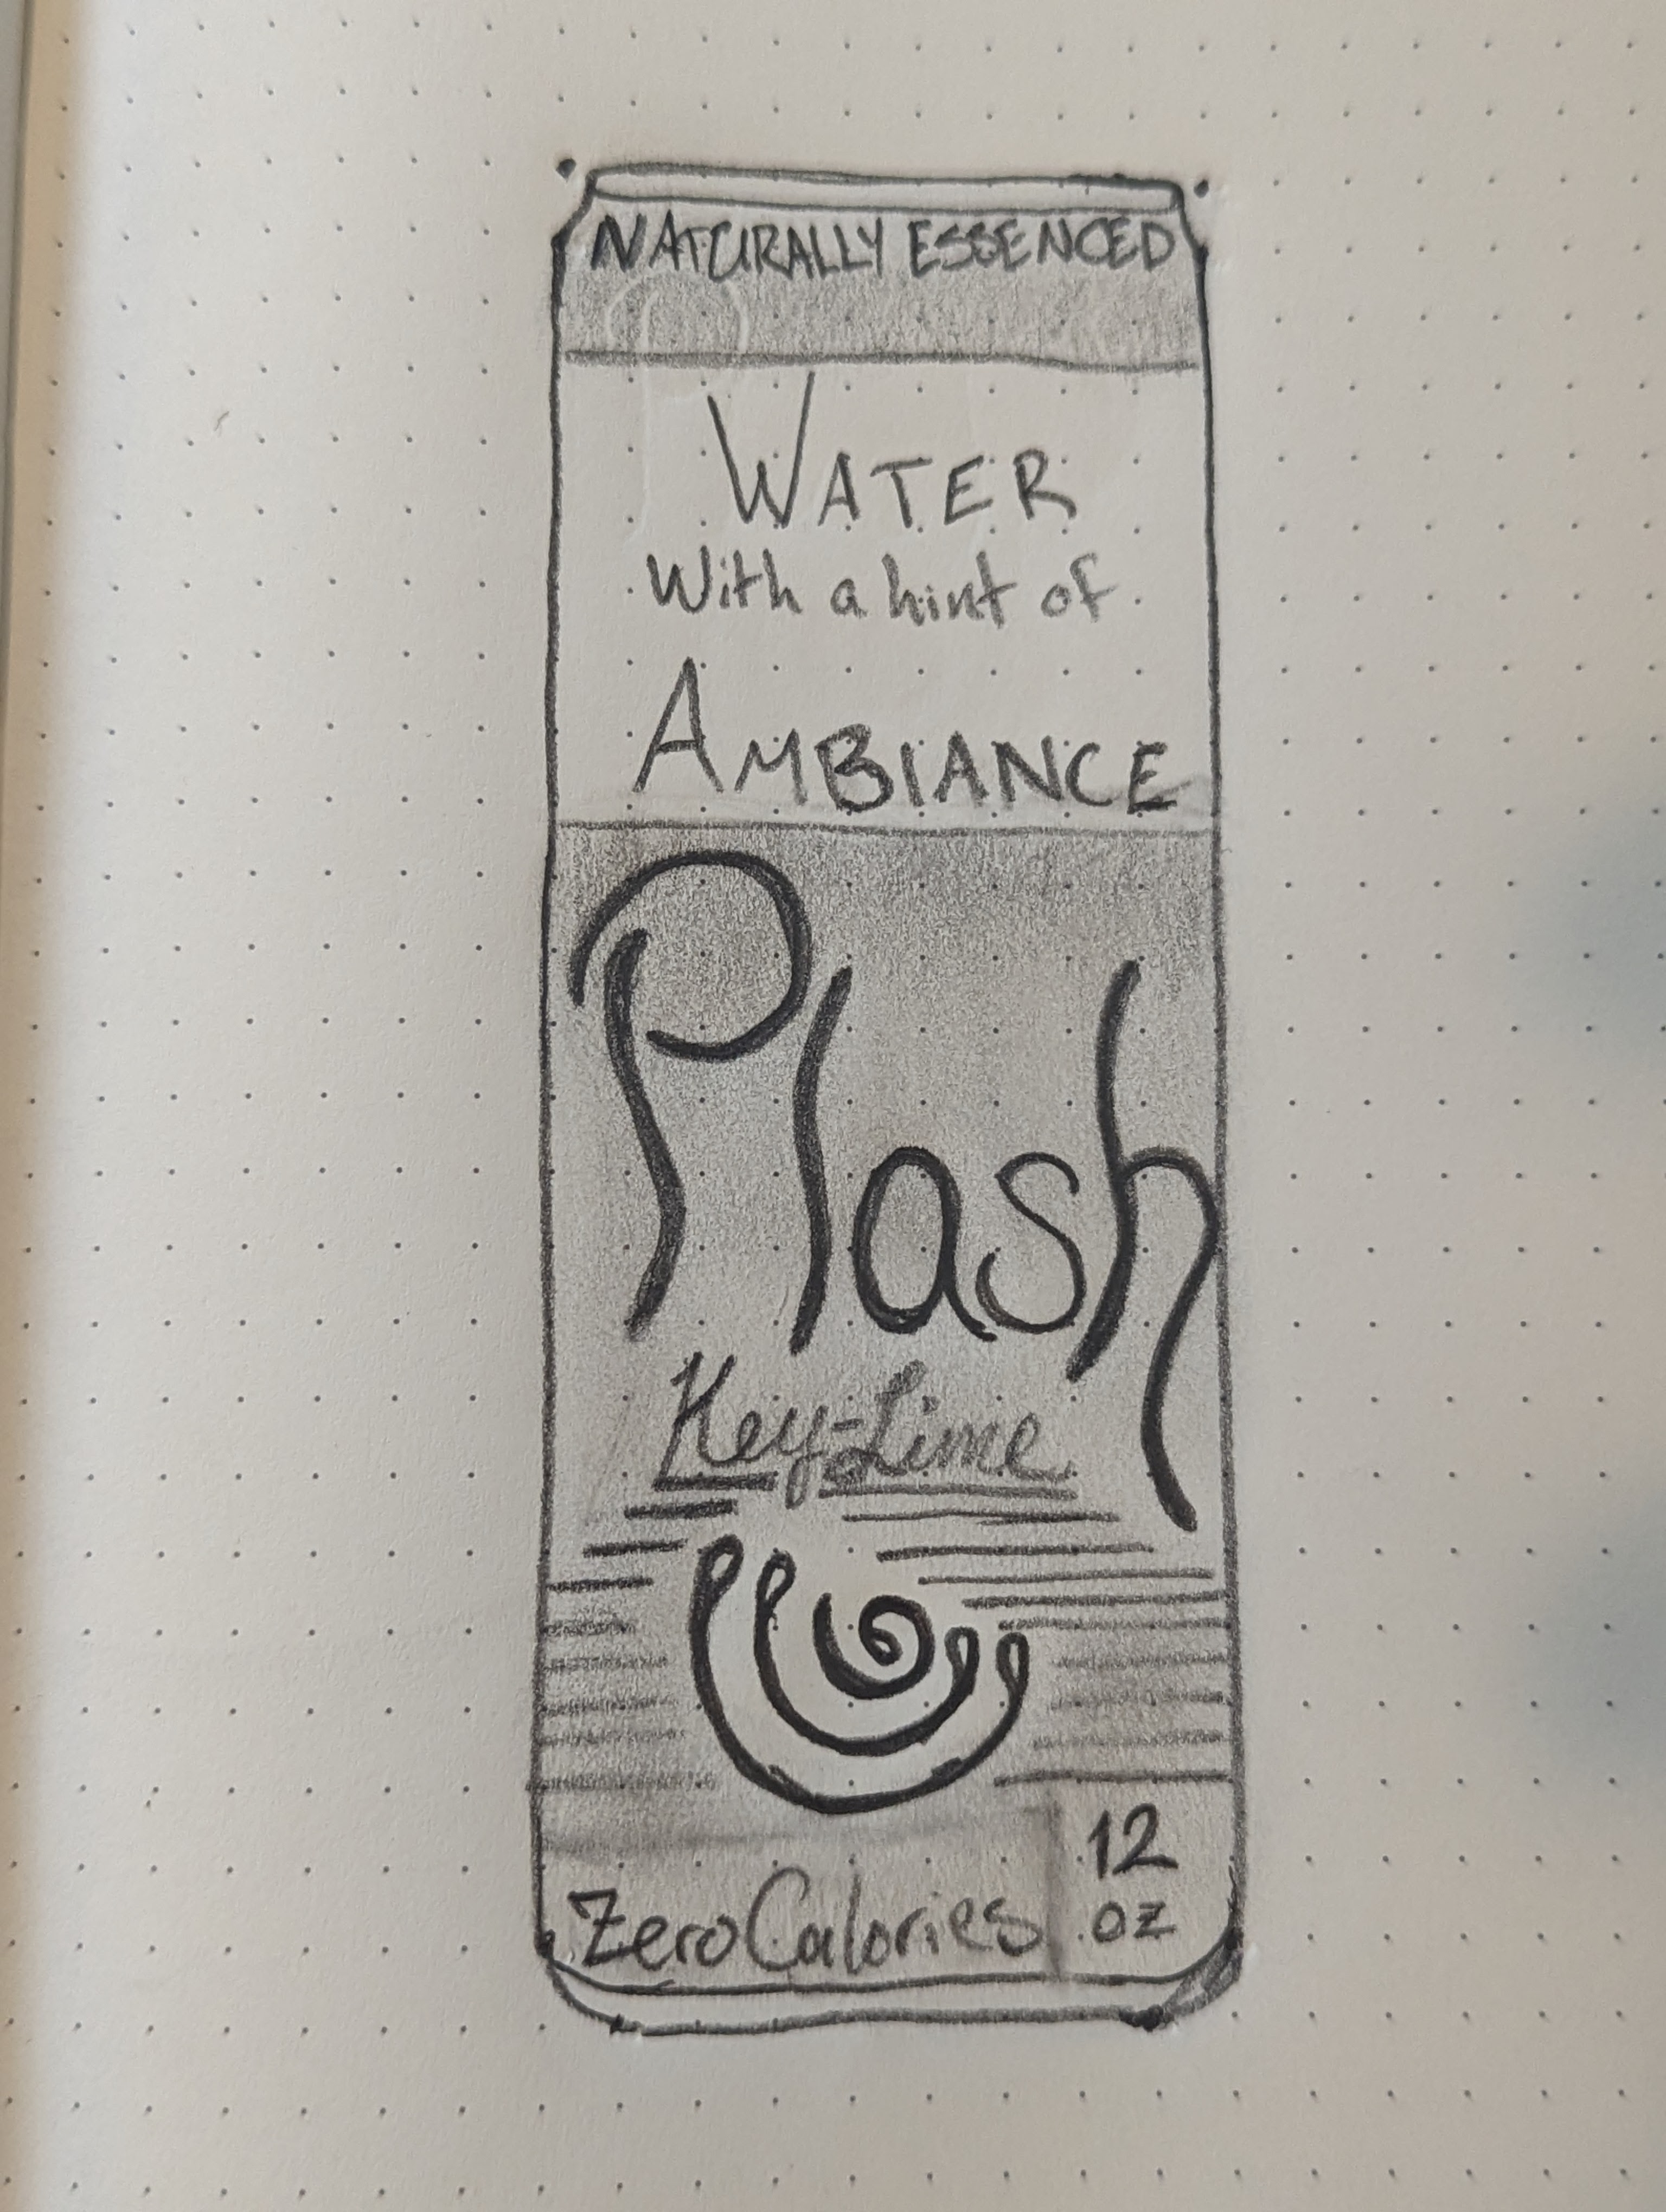 NATURALLY ESSENCED
WATER
With a hint of
AMBIANCE
Plash
Key-Lime
Zero Calories
12
oz